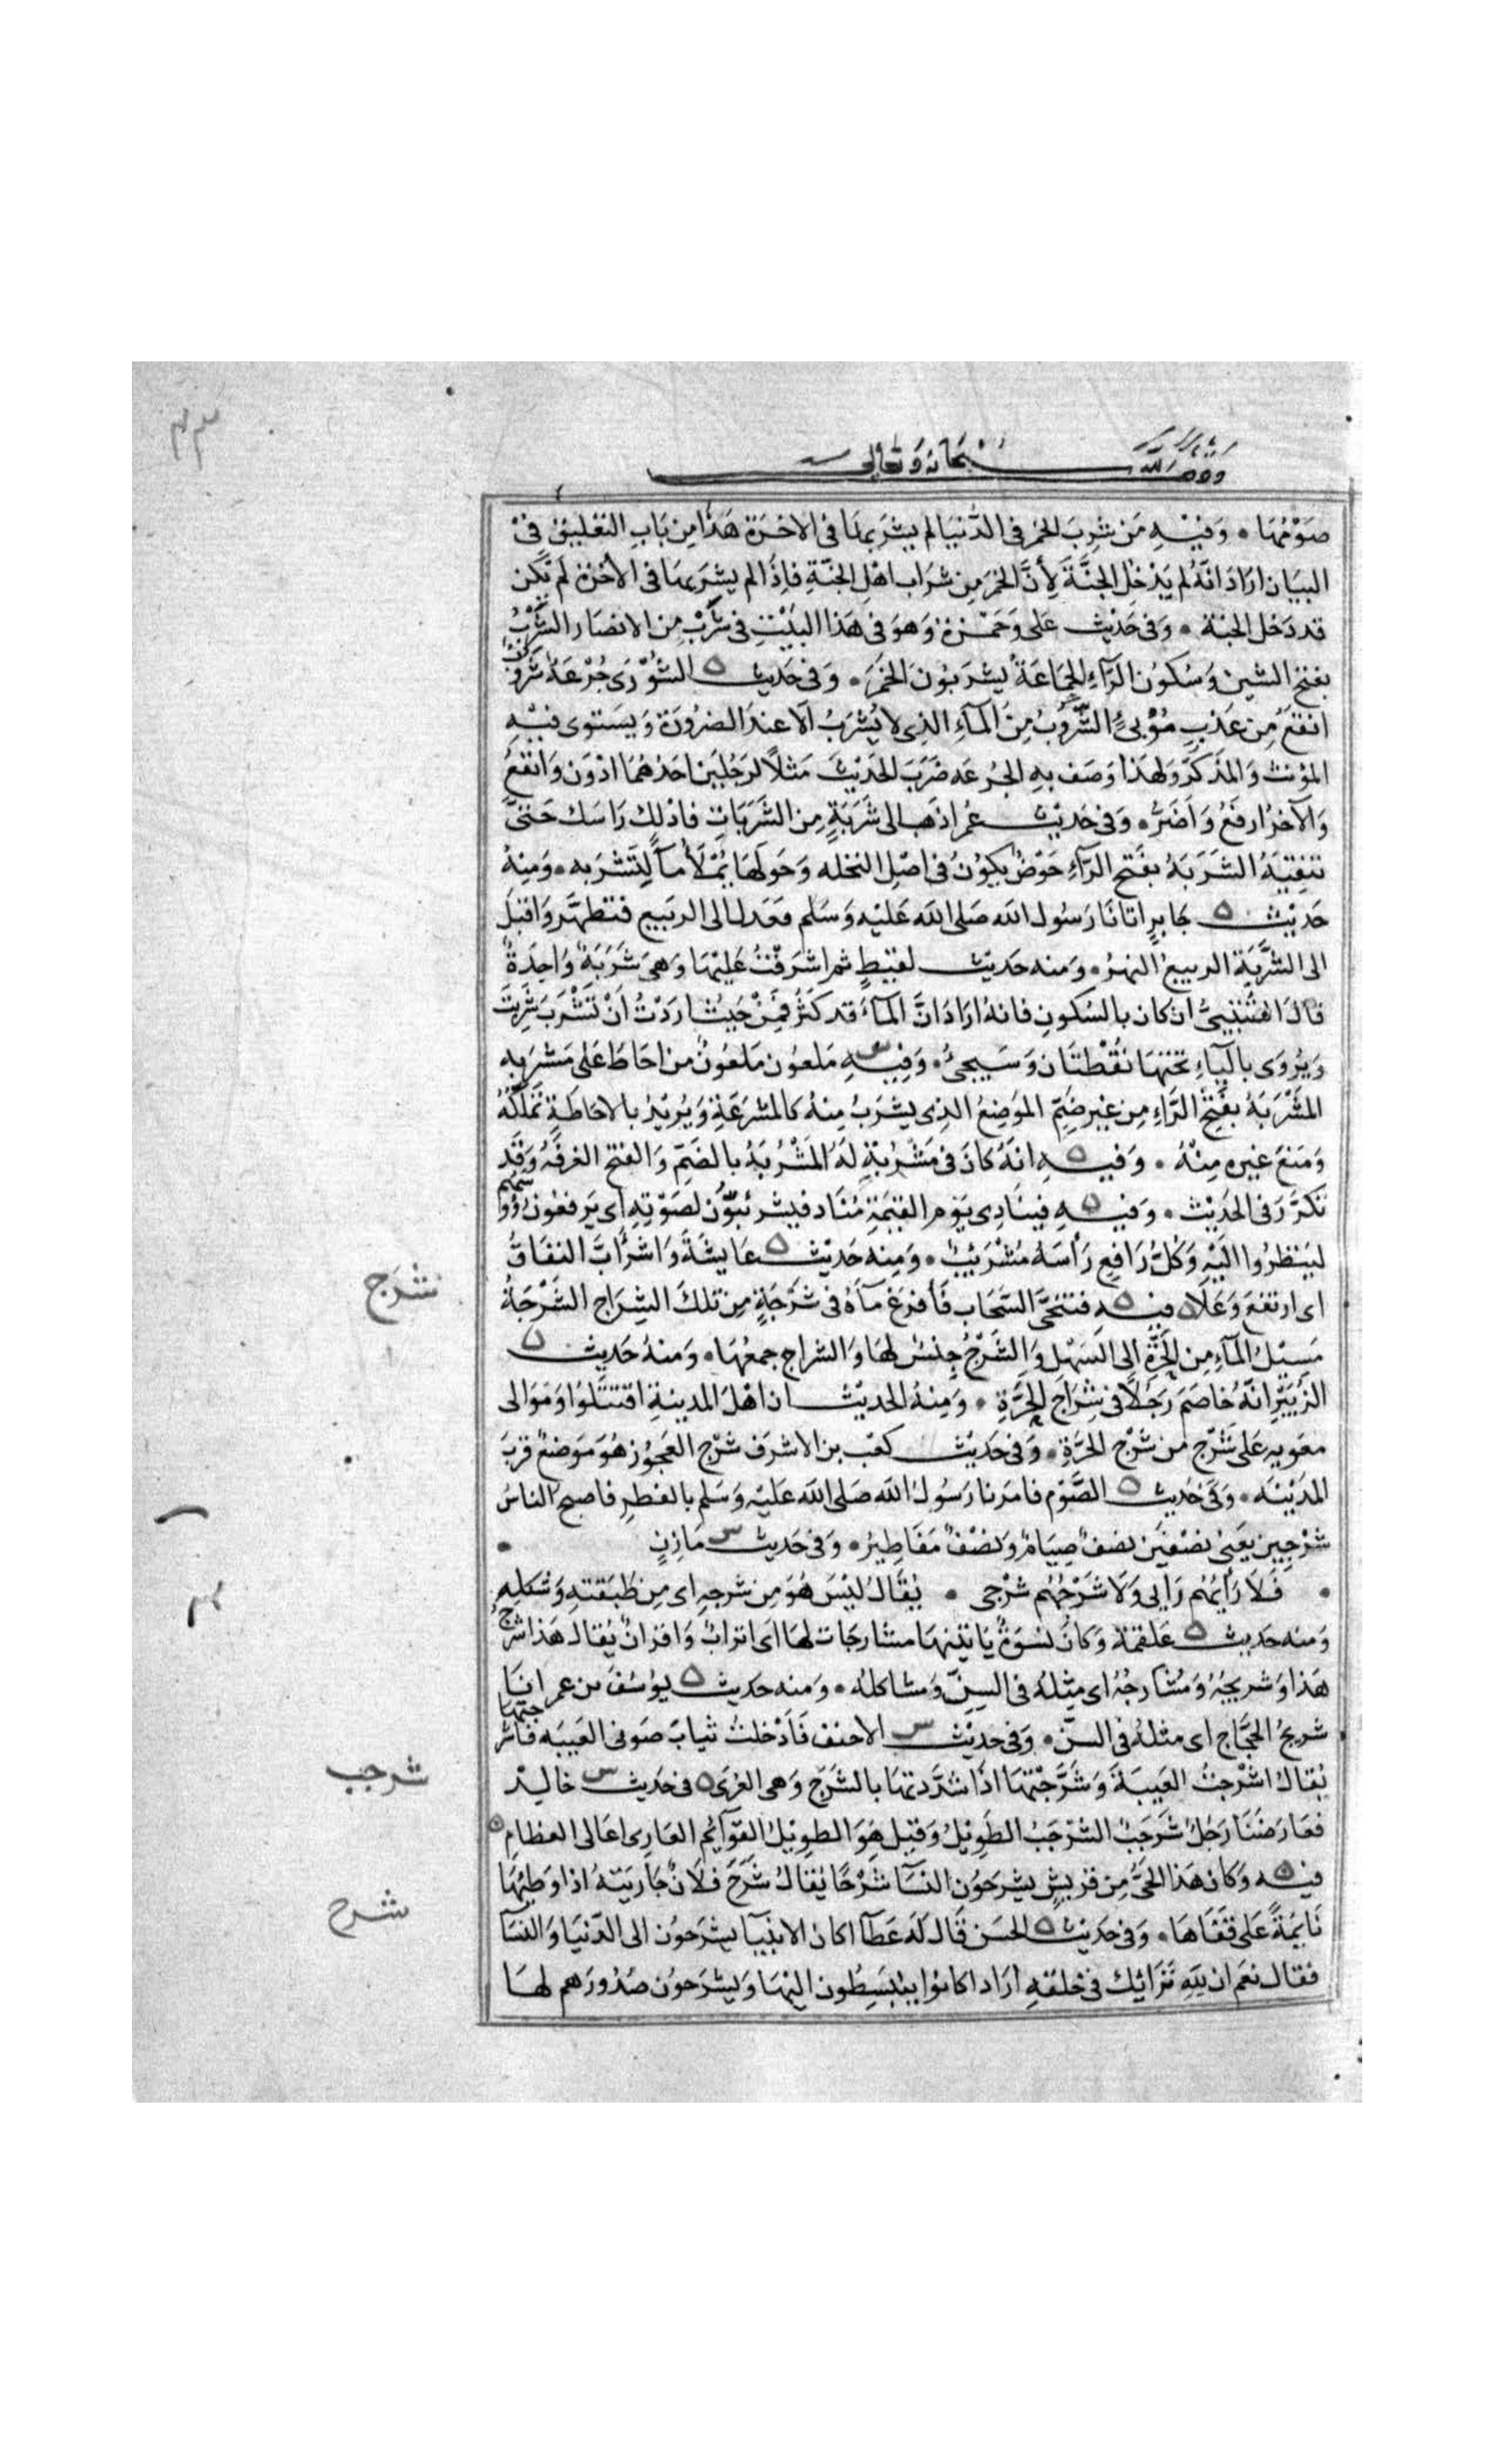 وقف لله سبحانه وتعالى
صَوْمُهَا • وَفِيْهِ مَن شرِبَ الخمرَ فى الدُّنيَا لم يشرَبهَا فى الاخرَة هَذَا مِن بَابِ التعْليْق فى
البيَان ارَادَ انَّهُ لم يَدْخُل الجنَّةَ لِأنَّ الخمرَ مِن شرَاب اهْلِ الجنّةِ فاِذَا لم يشرَبهَا فى الأخرَة لَم تكن
قد دَخل الجنة • وَفى حَدِيْث على وَحَمْزة وَهوَ فى هَذا البَيْتِ فى شَرْبٍ مِن الانصَار الشَّرْبُ
بفتح الشين وَسُكُون الرَّآءِ الجَمَاعَةُ يشرَبُون الخمَرَ • وَفى حَديث ه الشُوْرَى جُرْعَةُ شَرُوْبٍ
انفعُ مِن عَذبٍ مُوْبئٍ الشَّرُوبُ مِنَ المآءِ الذِى لا يُشرَبُ الّا عندَ الضرُورَة وَيَستوى فيْهِ
المؤنث وَالمذكرَّ وَلهَذا وَصَف بهِ الجرُعَه ضَرَبَ الحَدِيْث مَثلاً لرَجُليَن احَدُهُمَا ادْوَن وَانفعُ
وَالآخرُ ارفعُ وَاَضَرُّ • وَفى حَديْث عمُر اذهَب الى شَرَبَةٍ مِن الشَّرَبَاتِ فادْلك رَاسَك حَتىَّ
تنقِيَهُ الشَرَبَةُ بفَتح الرّآءِ حَوْضٌ يكوُنُ فى اصْلِ النخله وَحَولهَا يُمْلأُ مآءً لِتَشرَبه • وَمِنهُ
حَديْث ه جَابرٍ اتانَا رَسُول الله صَلى الله عَليْه وَسَلم فعَدل الى الربيع فتطهَّر وَاقبَلَ
الى الشَّرَبَةِ الربيعُ النهرُ • وَمنه حَديث لقيْطٍ ثم اشرَفْتُ عَليْهَا وَهىَ شَرَبَةٌ وَاحِدَةٌ
قالَ القتيْبىُّ ان كان بالسُكونِ فانهُ ارَادَ انَّ المآءَ قد كثرُ فمِنْ حَيْث ارَدْتُ أنْ تَشْرَبَ شَرِبْتَ
وَيُرْوَى باليآءِ تحْتهَا نقْطتَان وَسَيجئُ • وَفِيْهِ س مَلعوُن مَلعوُنٌ من احَاطَ عَلى مَشرَبه
المَشْرَبَةُ بفَتحْ الرَّآءِ مِن غيْر ضَمٍّ الموَضِعُ الذِى يشرَبُ مِنهُ كالمشرَعَةِ وَيُريْدُ بالاحَاطَةِ تملكهُ
وَمَنعَ غيْره مِنهُ • وَفيه ه انهُ كانَ فى مَشْرُبَةٍ لهُ المَشْرُبَةُ بالضَّمِّ وَالفتح الغرفةُ وَقَد
تكرَّرَ فى الحَدِيْث • وَفيه ه فينَادِى يَوْم القيمَةِ مُنَادٍ فيشرَئبُّوْن لصَوْتِهِ اى يَرفعوُن رؤوسهم
ليَنظرُوا اليَْهِ وَكلُّ رَافعٍ رَأسَهُ مُشرَئِبٌّ • وَمِنه حَدِيْث ه عَايشَةَ وَاشرَأَبَّ النفَاقُ
اى ارتفعَ وَعَلا ه فيه ه فتنحَّى السَّحَاب فَأفرَغ مآءَهُ فى شَرْجَةٍ مِن تلكَ الشِرَاج الشَّرْجَةُ
مَسِيْلُ المآءِ مِن الحَرَّةِ الى السَهْل وَالشَّرْجُ جِنسٌ لهَا وَالشراج جمعُهَا • وَمنهُ حَديث ه
الزُّبَيْرِ انَّهُ خاصَمَ رَجُلاً فى شِرَاج الحَرَّةِ • وَمِنهُ الحديْث ان اهْلَ المدينةِ اقتتلوُا وَمَوَالى
معويه عَلى شَرْج من شَرْج الحَرّةِ • وَفى حَدِيْث كعْب بن الاشرَف شرْج العَجُوْز هُوَ مَوضعٌ قربَ
المَدِيْنَه • وَفى حَديث ه الصَّوْم فامَرنا رَسُولُ الله صَلى الله عَليْه وَسَلم بالفطرِ فاصبح الناسُ
شرْجِين يَعْنى نصْفيْن نصْفٌ صِيَامٌ وَنصْفٌ مَفَاطِيْرُ • وَفى حَديث س مَازِنٍ •
• فَلا رَأيُهُم رَأيى وَلا شَرْجُهُم شَرْجى • يُقَالُ ليْسَ هُوَ مِن شرجهِ اى مِن طبَقتهِ وَشكلهِ
وَمنه حَديث ه عَلقمَة وَكانَ نسْوَةٌ يَاتيْنهَا مشَارجَات لهَا اى اترابٌ وَاقرانٌ يُقالُ هَذا شرْجُ
هَذا وَشريجُهُ وَمُشَارجُهُ اى مِثلهُ فى السِنّ وَمشاكلهُ • وَمنه حَديث ه يوُسُفَ بن عمر انَا
شريْجُ الحجَّاج اى مثلهُ فى السّن • وَفى حَديْث س الاحنف فَأدْخلتُ ثيابَ صَونى العَيبَه فاشرجتها
يُقالُ اشرْجتُ العَيبَةَ وَشرَّجْتهَا اذَا شدَّدتهَا بالشرَج وَهى العُرَى ه فى حَديث س خاليْد
فعَارَضنَا رَجُلٌ شرْجَبٌ الشرْجَبُ الطَوِيْلُ وَقيْل هوَ الطويْلُ القوَآئمِ العَارِى اعَالى العظامِ ه
فيه ه وَكان هَذا الحَىُّ مِن قريْشٍ يشرَحُون النسَآءَ شرْحًا يُقالُ شرَحَ فلَانٌ جَاريَتهُ اذا وَطئهَا
نَايمَةً عَلى قفَاهَا • وَفى حَديث ه الحسَن قَال لهَ عَطآ اكان الانبيآ يشرَحوُن الى الدّنيَا وَالنسَآ
فقال نعَم ان للهِ تَرَائك فى خلقه ارَادَ كانوا ينبَسِطُون اليْهَا وَيشرَحوُن صدُورَهم لهَا
شرج
شرجب
شرح